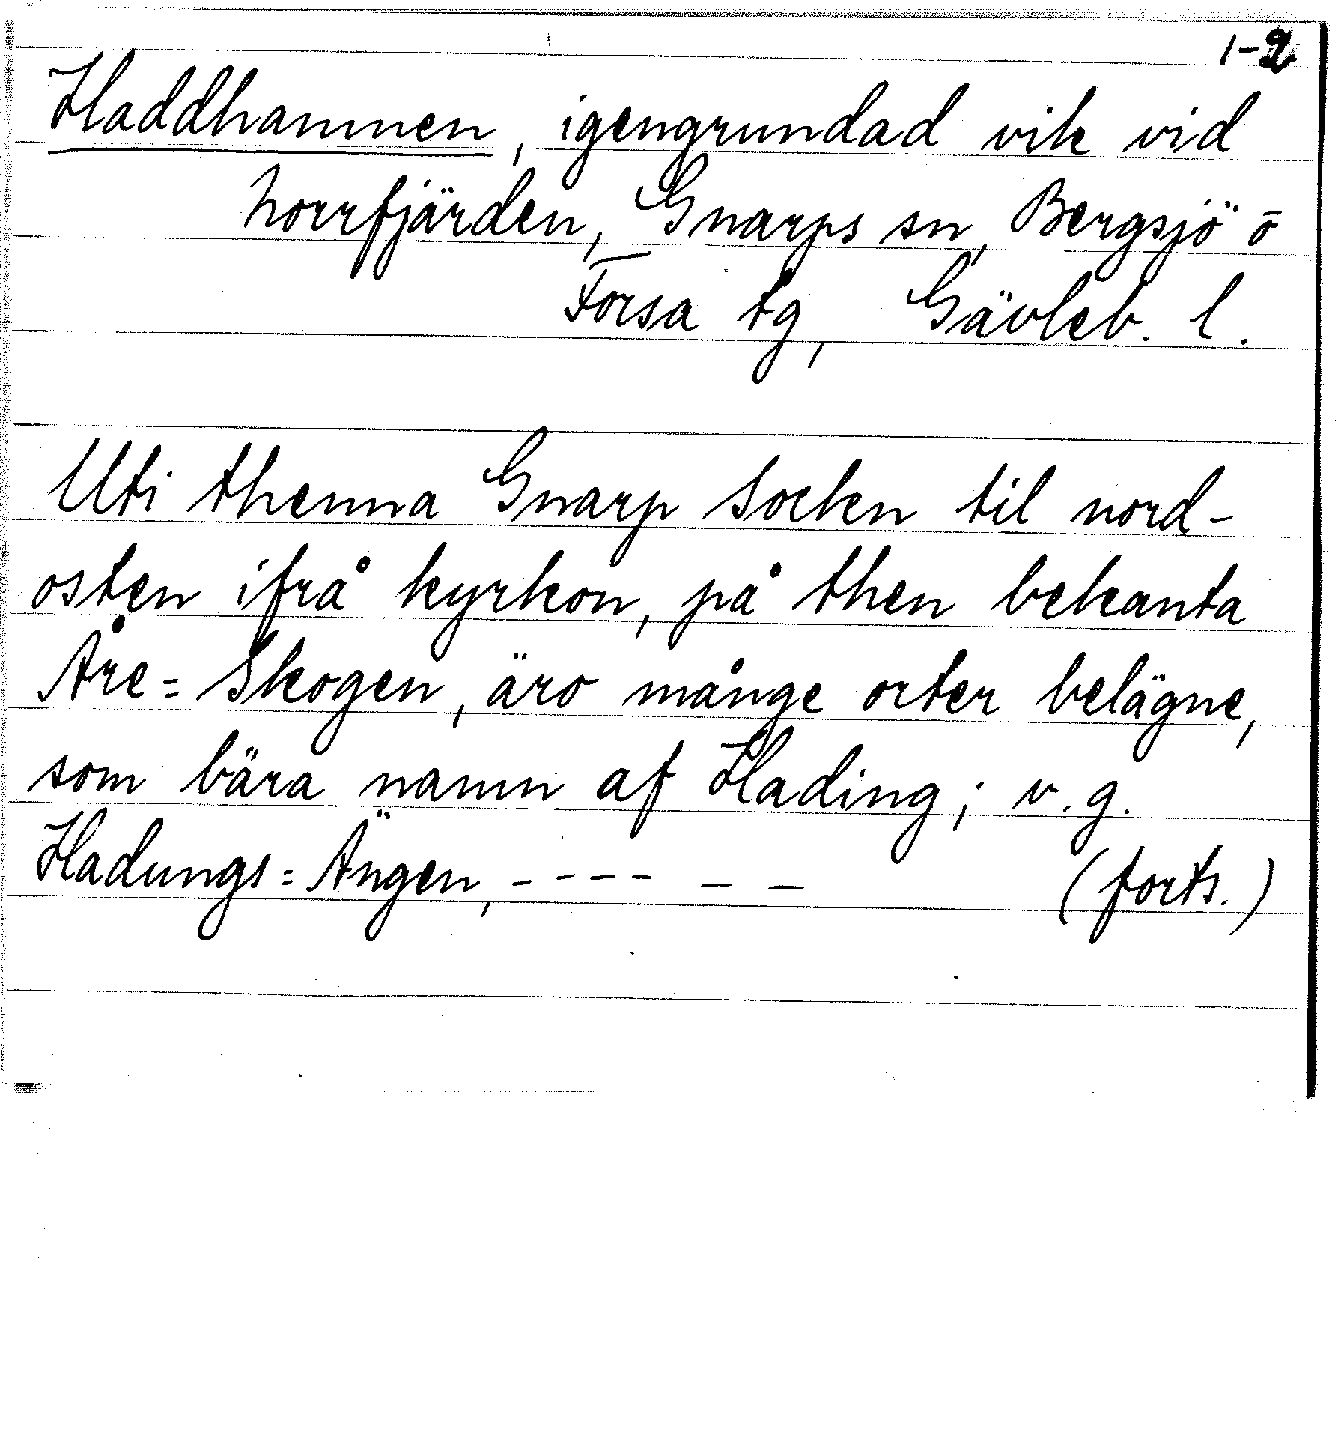 1-2
Haddhamnen, igengrundad vik vid
Norrfjärden, Gnarps sn, Bergsjö o
Forsa tg, Gävleb. l.
Uti thenna Gnarp Socken til nord-
osten ifrå kyrkon, på then bekanta
Åre= Skogen, äro många orter belägne,
som bära namn af Hading; v. g.
Hadungs= Ängen, - - - - - - (forts.)